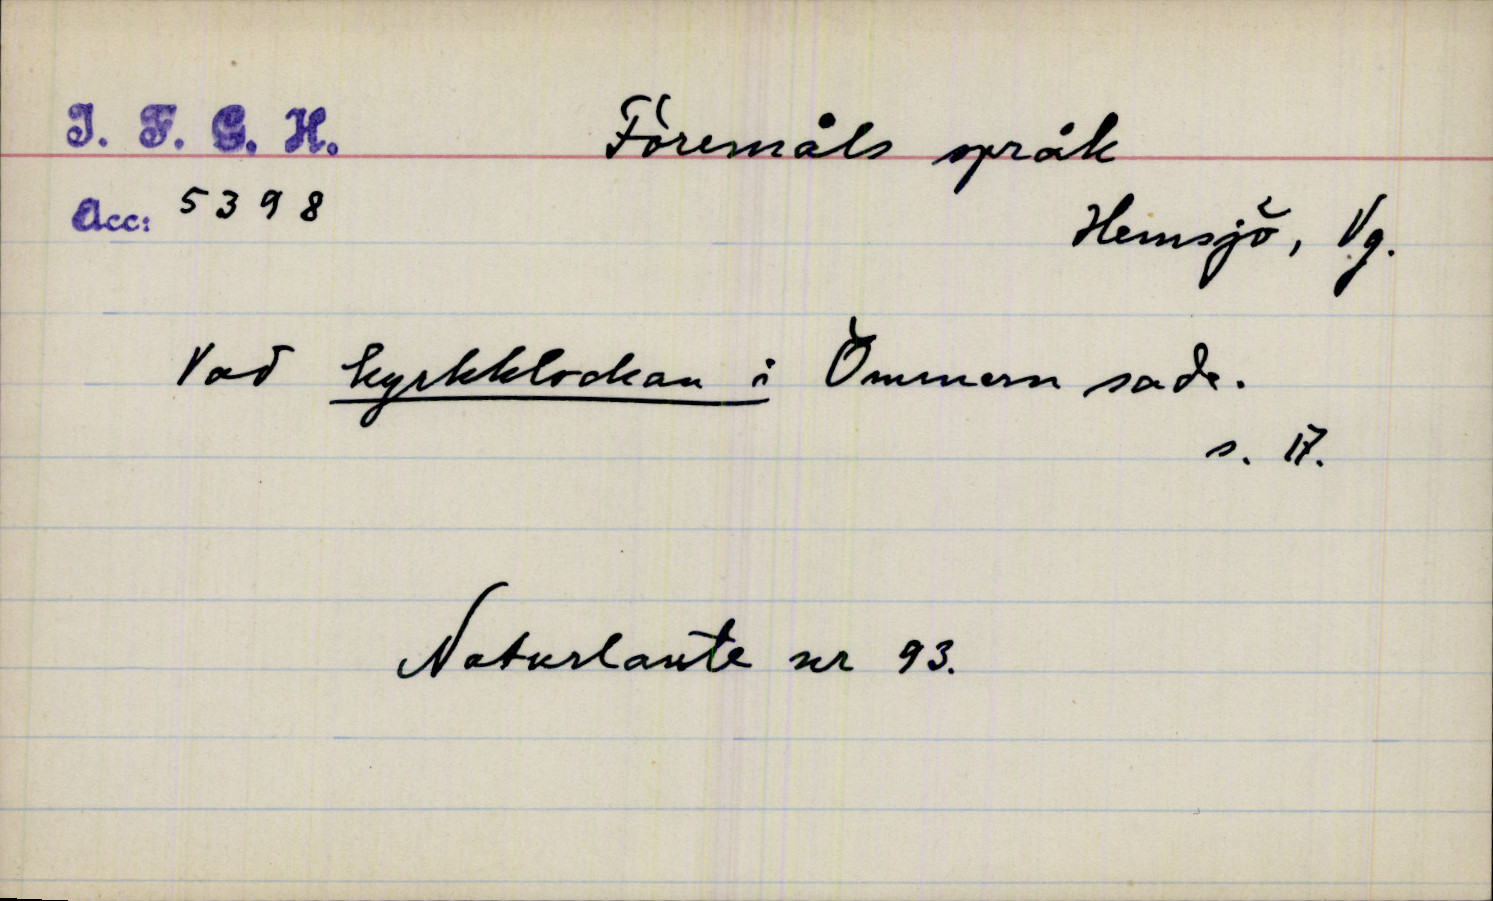 I. F. G. H.
Föremåls språk
Acc: 5398
Hemsjö, Vg.
Vad kyrkklockan i Ömmern sade.
s. 17.
Naturlaute nr 93.